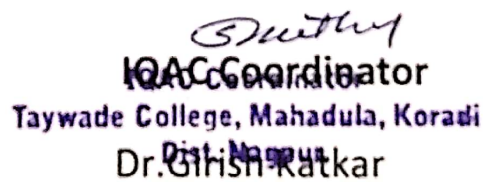 IQAC Coordinator
IQAC Coordinator
Taywade College, Mahadula, Koradi
Dist. Nagpur
Dr.Girish Katkar